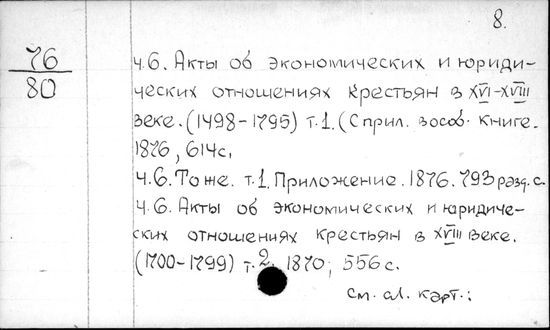 8.
76
80
ч.6. Акты об экономических и юриди-
ческих отношениях крестьян в XVI-XVIII
веке. (1498-1795) т.1. (С прил. в особ. книге.
1876, 614с.
ч.6. То же. т.1. Приложение. 1876. 793 разд. с.
ч.6. Акты об экономических и юридиче-
ских отношениях крестьян в XVIII веке.
(1700-1799) т.2. 1870; 556 с.
см. сл. карт.: